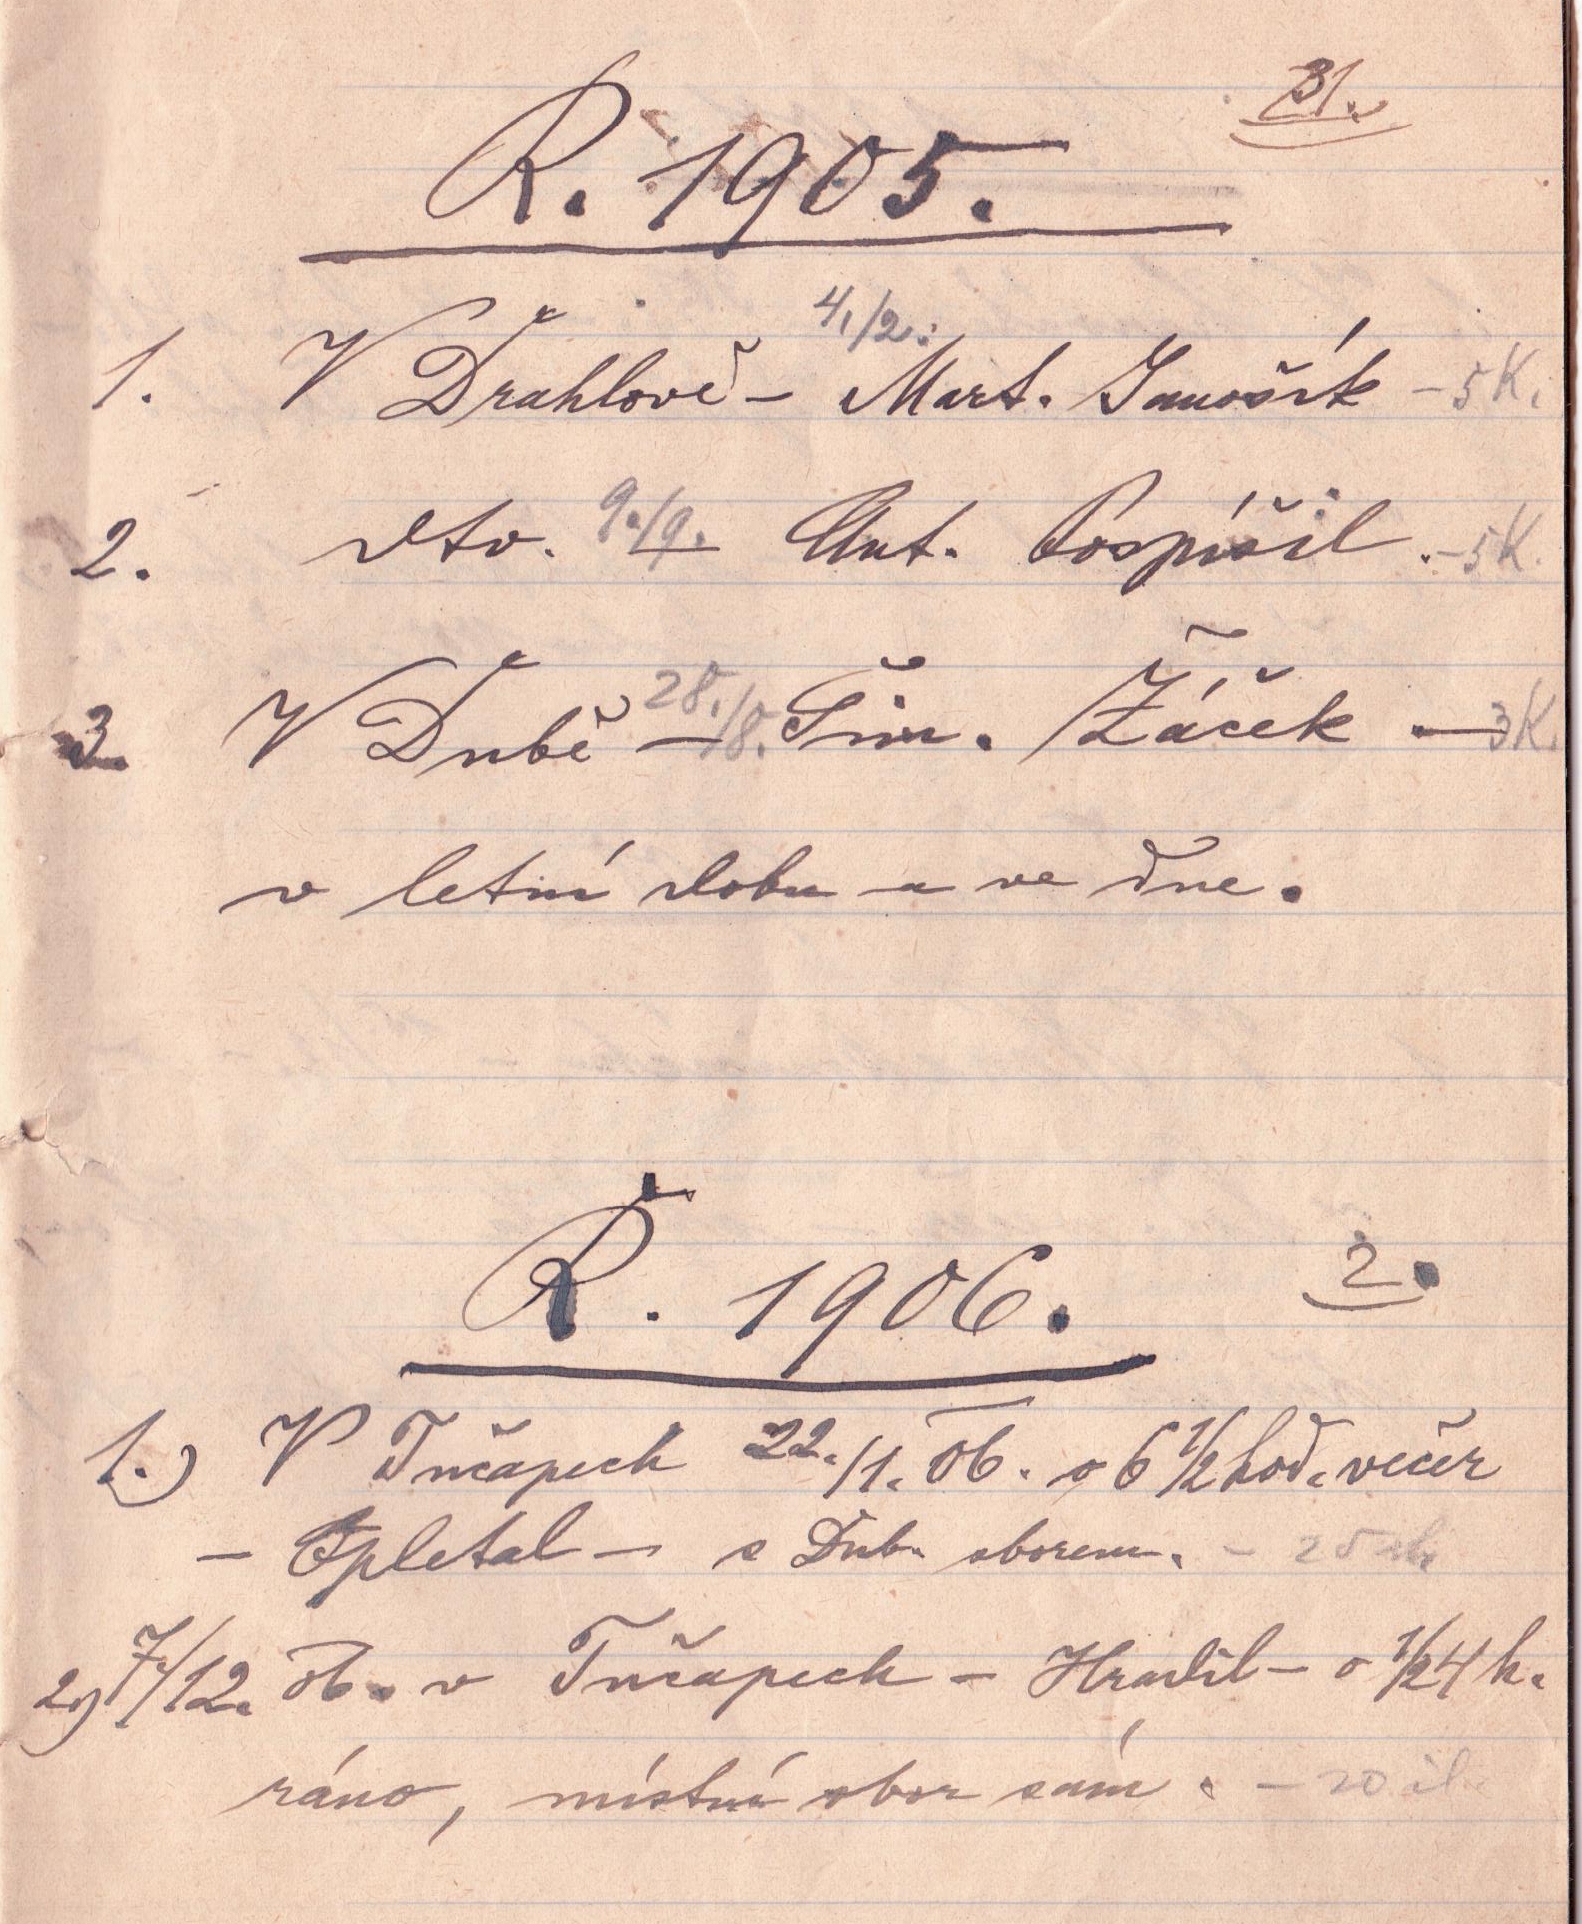 31.
R. 1905.
4./2.
1. V Drahlově – Mart. Janošík – 5 K.
2. dto. 9./9. – Ant. Pospíšil. – 5 K.
3. V Dubě – 28./8. Šim. Žáček – 3 K.
v letní dobu a ve dne.
R. 1906. 2.
1.) V Tučapech 22./1. 06. o 6 1/2 hod. večer
– Opletal – s Dub. sborem. – 25
2.) 7/12. 06. v Tučapech – Hradil – o 1/2 4 h.
ráno, místní sbor sám. – 20